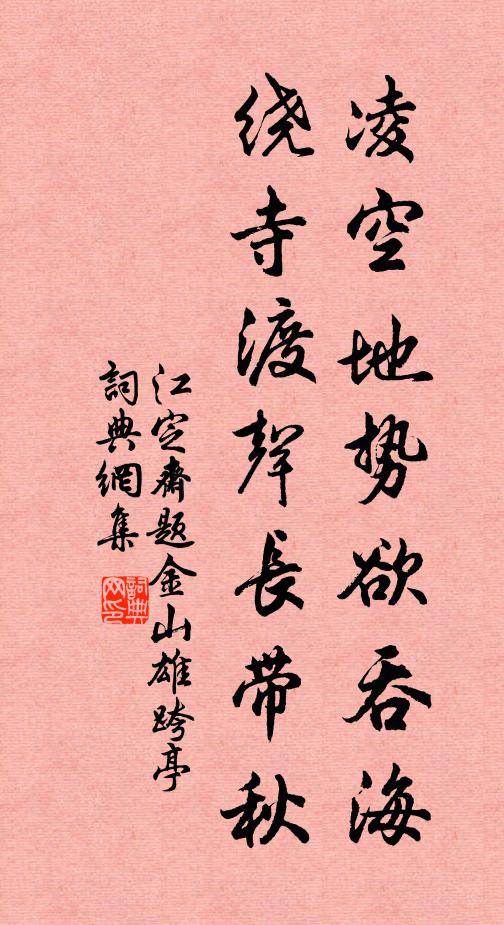 凌空地势欲吞海
绕寺渡聲長帶秋
江定齋題金山雄跨亭
詞典網集
詞典网印